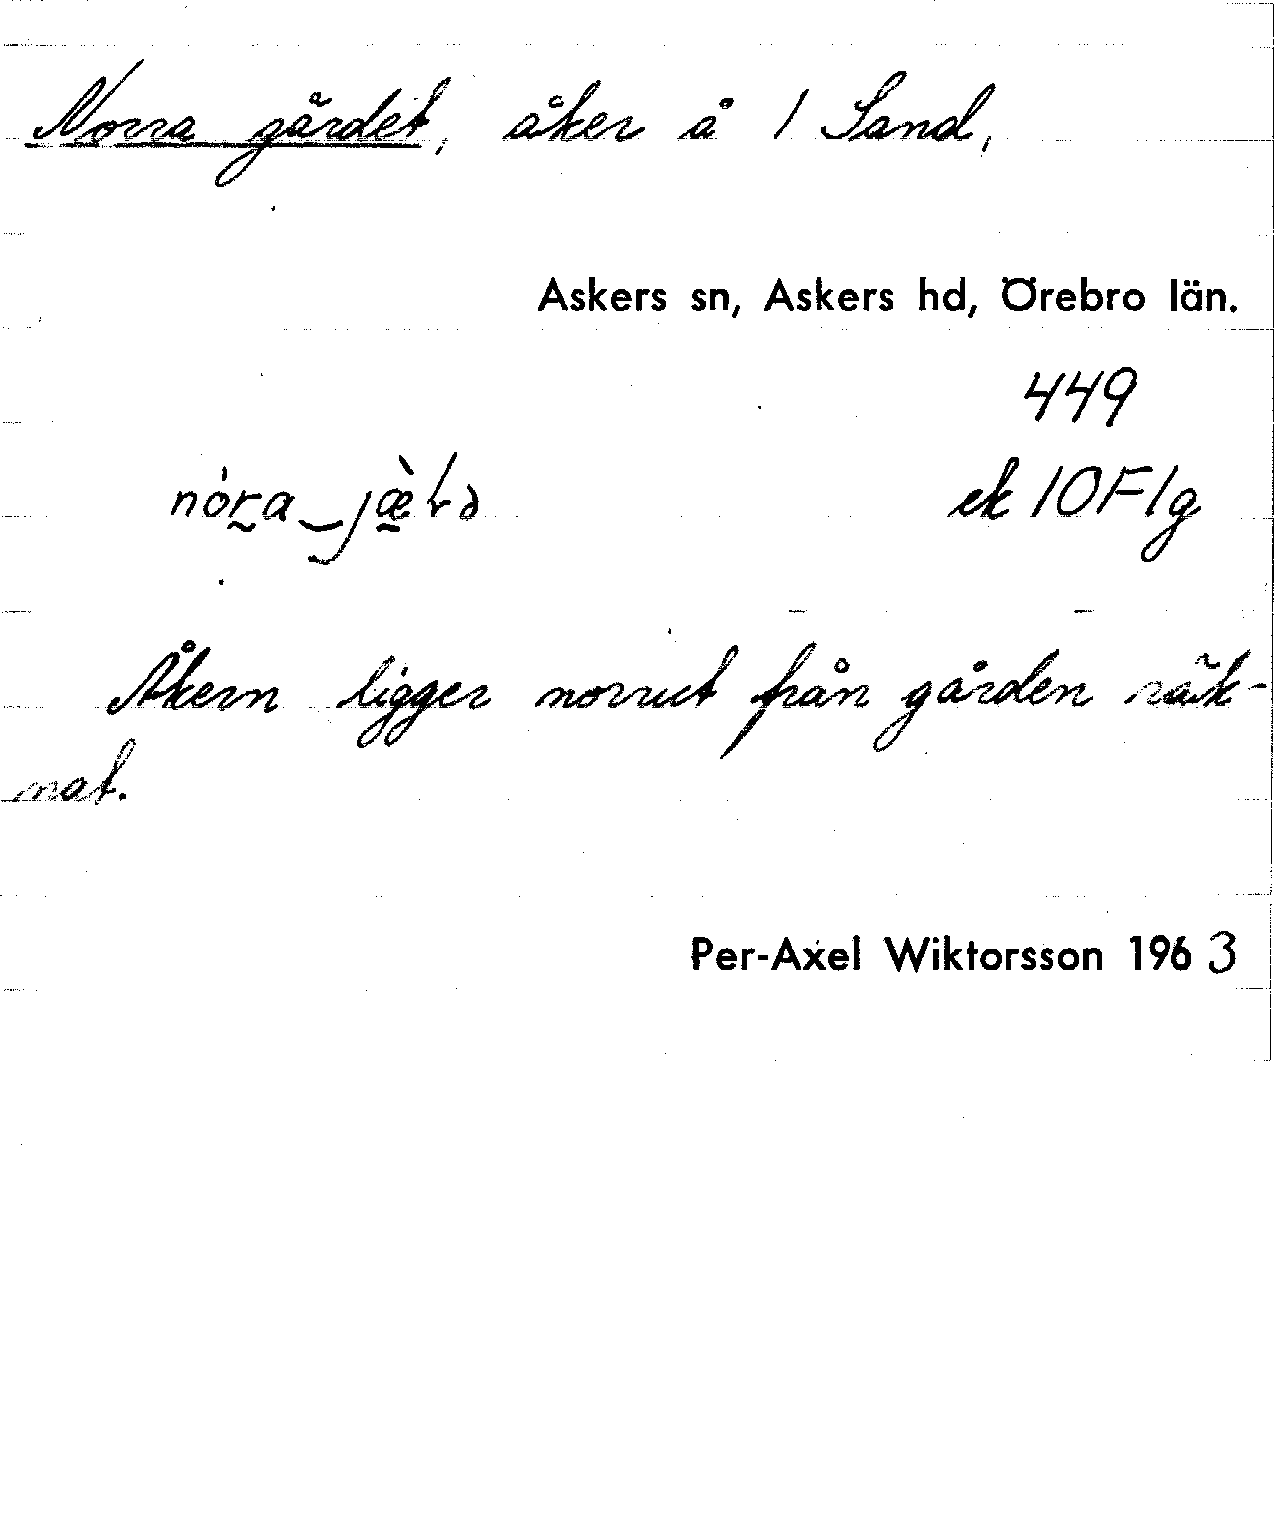 Norra gärdet, åker å 1 Sand,
Askers sn, Askers hd, Örebro län.
449
ek 10F1g
Åkern ligger norrut från gården räk-
nat.
Per-Axel Wiktorsson 1963